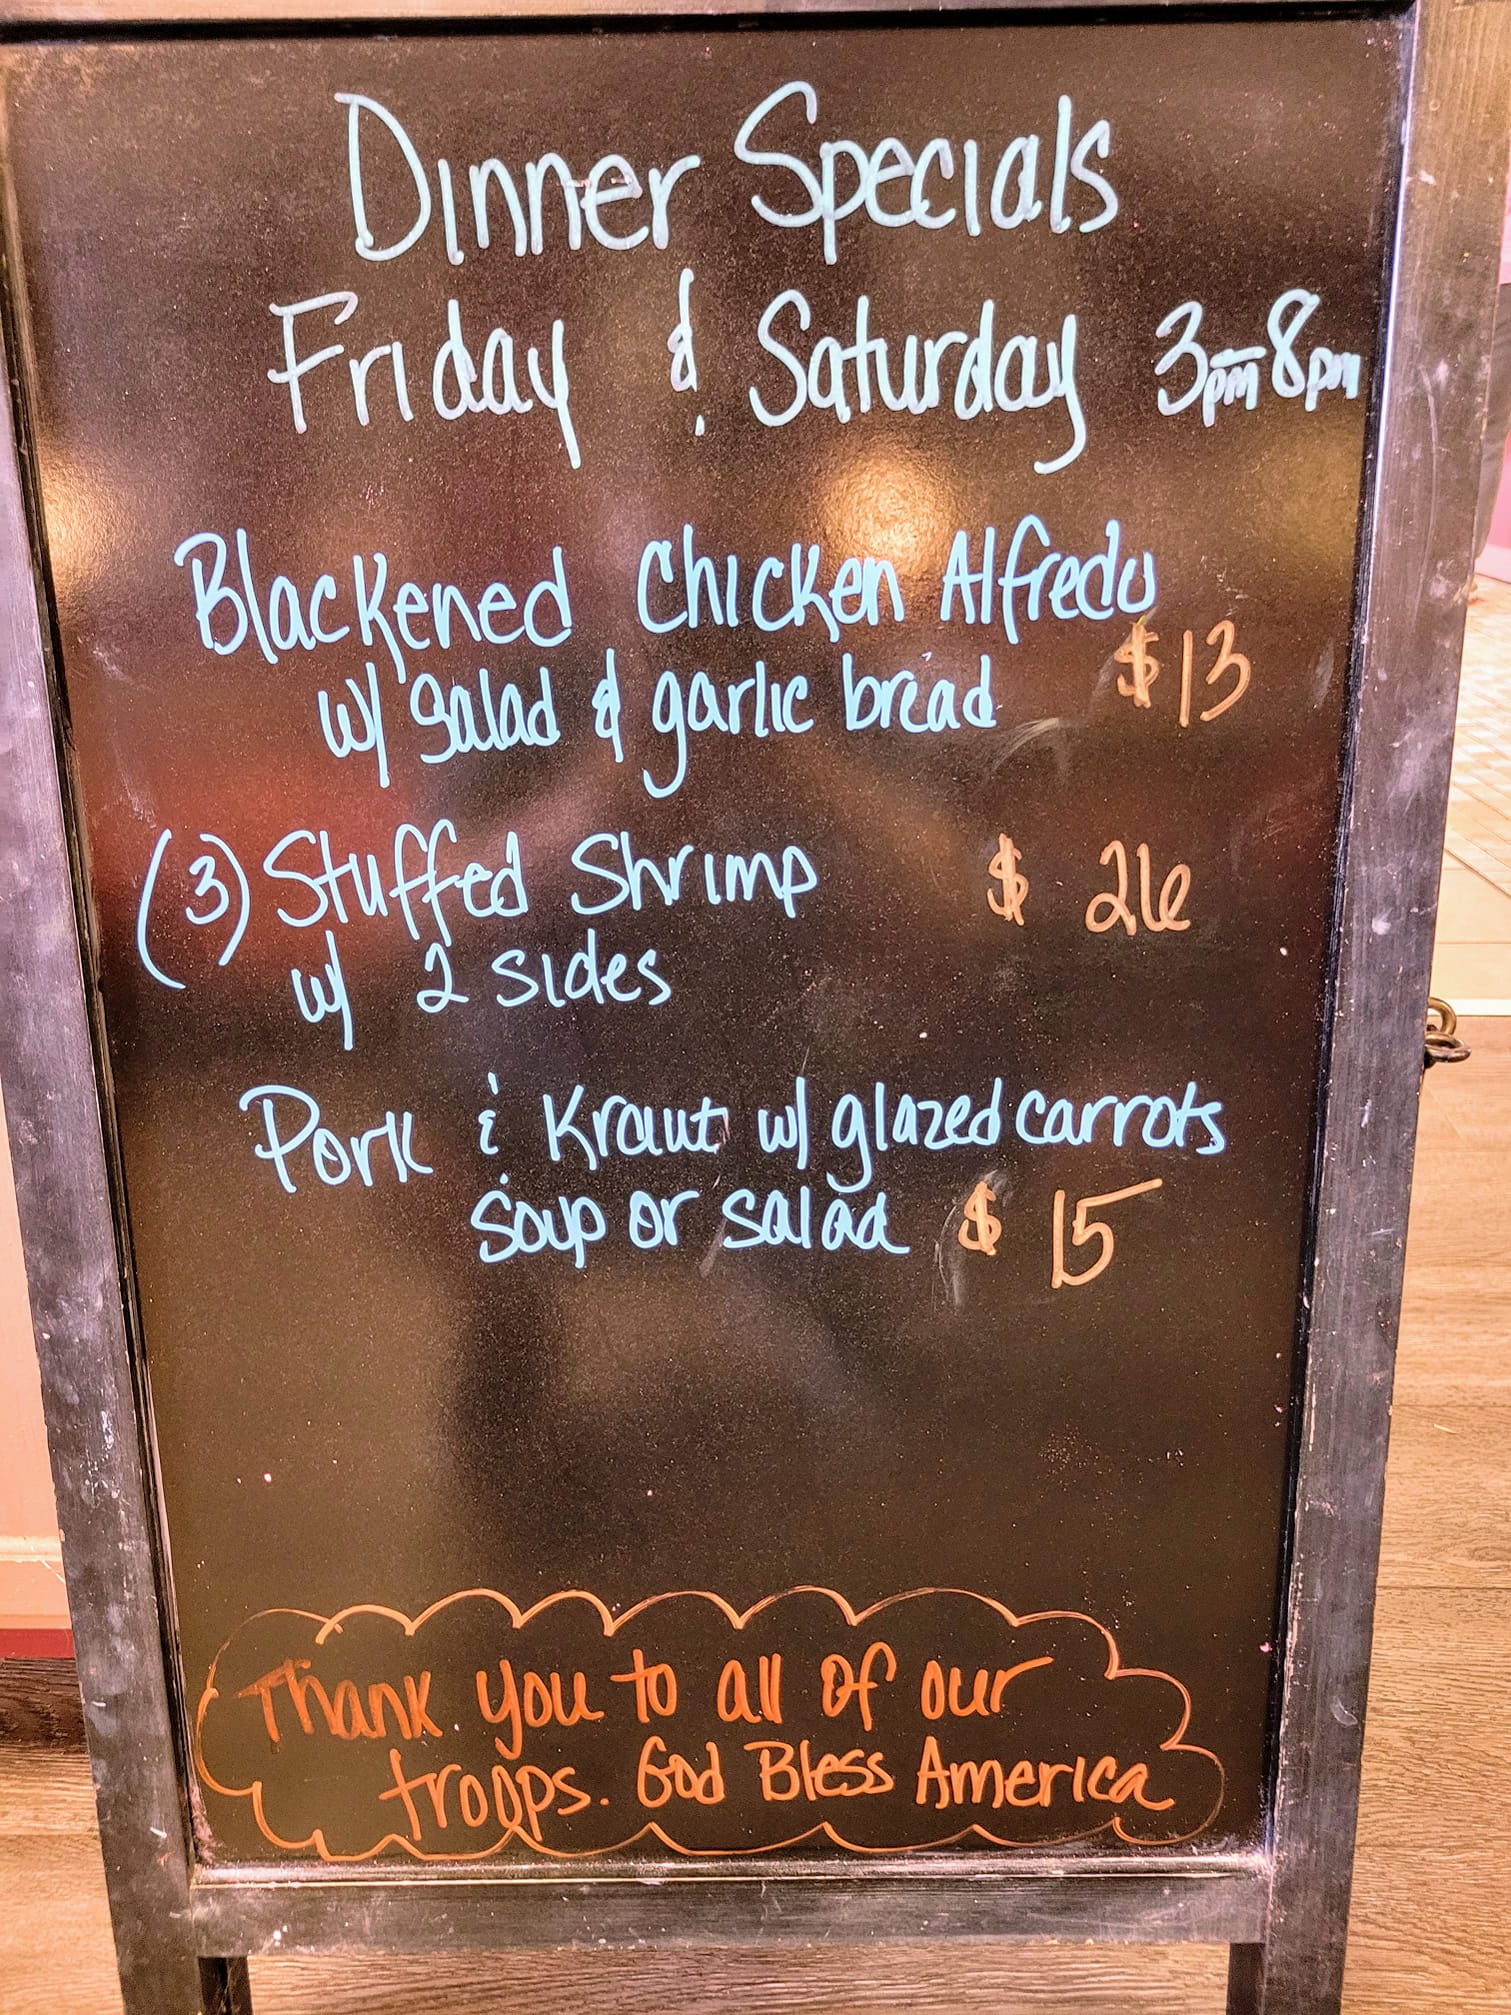 Dinner Specials
Friday & Saturday 3pm-8pm
Blackened Chicken Alfredo
w/ salad & garlic bread $13
(3) Stuffed Shrimp $ 26
w/ 2 sides
Pork & Kraut w/ glazed carrots
soup or salad $ 15
Thank you to all of our
troops. God Bless America